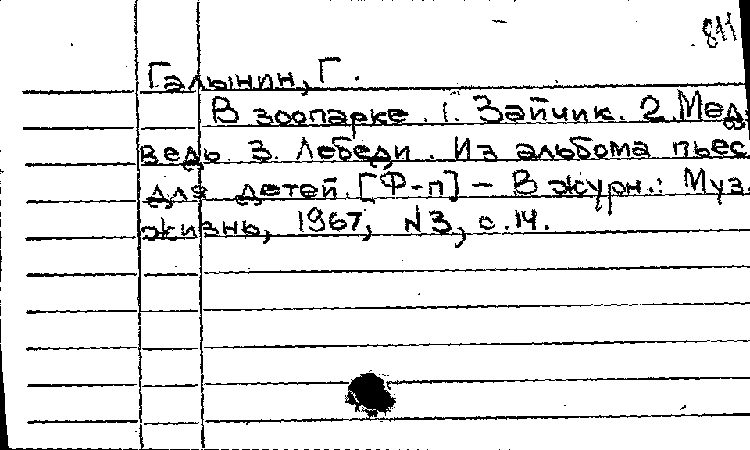 811
Галынин, Г.
В зоопарке. 1. Зайчик. 2. Мед-
ведь. 3. Лебеди. Из альбома пьес
для детей. [Ф-п] – В журн.: Муз.
жизнь, 1967, №3, с.14.